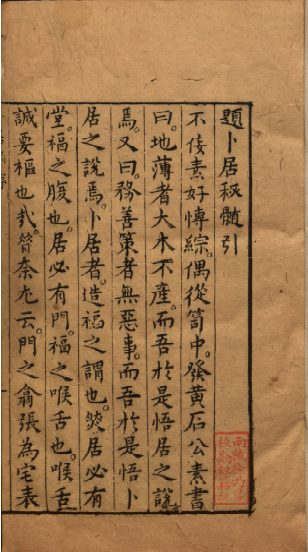 題卜居秘髓引
不佞素好博綜。偶從笥中。發黃石公素書
曰。地薄者大木不產。而吾於是悟居之說
焉。又曰。務善策者無惡事。而吾於是悟卜
居之說焉。卜居者。造福之謂也。獘居必有
堂。福之腹也。居必有門。福之喉舌也。喉舌
誠要樞也哉。笥奈尢云。門之翕張為宅表